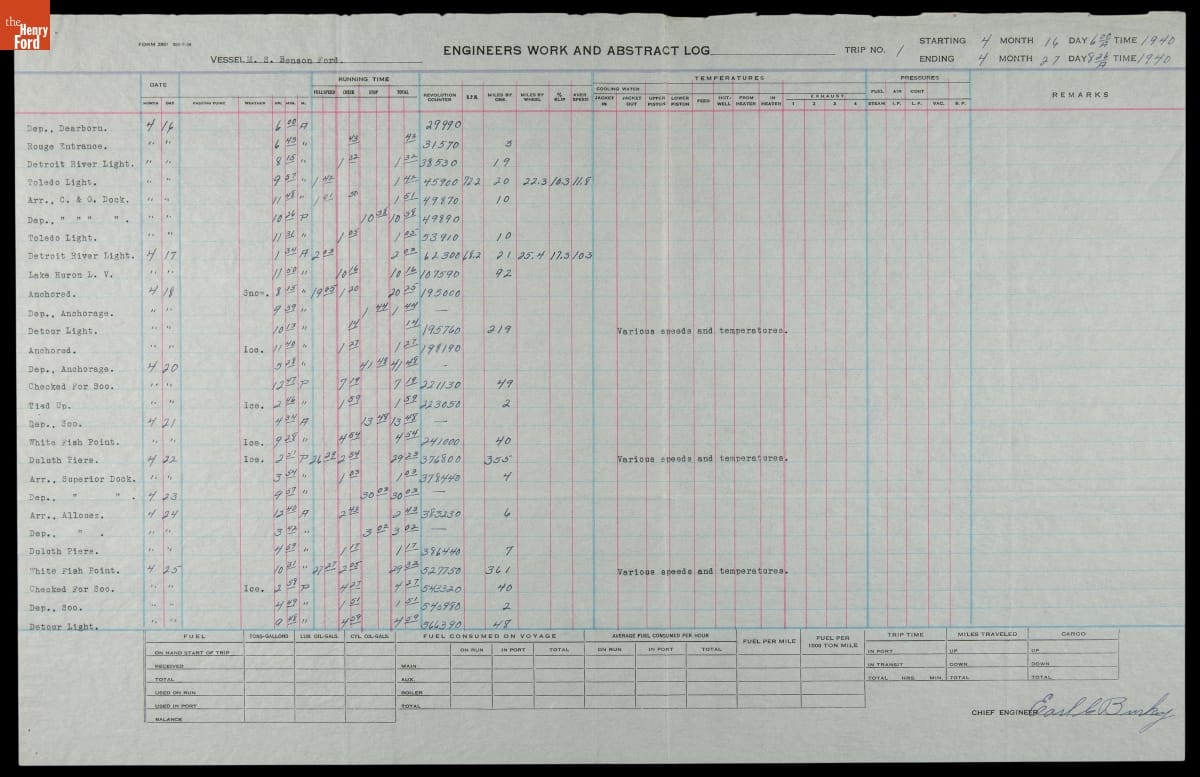 the
Henry
Ford
FORM 2901
ENGINEERS WORK AND ABSTRACT LOG
TRIP NO. 1
STARTING 4 MONTH 16 DAY 6 00 A TIME 1940
ENDING 4 MONTH 27 DAY TIME 1940
VESSEL M. S. Benson Ford.
DATE RUNNING TIME REVOLUTION COUNTER R.P.M. MILES BY OBS. MILES BY WHEEL % SLIP AVER SPEED TEMPERATURES PRESSURES REMARKS
MONTH DAY PASSING POINT WEATHER HR. MIN. M. FULL SPEED CHECK STOP TOTAL
COOLING WATER JACKET IN JACKET OUT UPPER PISTON LOWER PISTON FEED HOT-WELL FROM HEATER IN HEATER EXHAUST 1 2 3 4 FUEL AIR CONT STEAM I.P. L.P. VAC. B.P.
Dep., Dearborn. 4 16 6 00 A 29990
Rouge Entrance. " " 6 43 " 43 43 31570 3
Detroit River Light. " " 8 15 " 1 32 1 32 38530 19
Toledo Light. " " 9 57 " 1 42 1 42 45900 72.2 20 22.3 10.3 11.8
Arr., C. & O. Dock. " " 11 48 " 1 51 49870 10
Dep., " " " ". " " 10 26 P 10 38 10 38 49890
Toledo Light. " " 11 31 " 1 05 1 05 53910 10
Detroit River Light. 4 17 1 34 A 2 03 2 03 62300 68.2 21 25.4 17.3 10.3
Lake Huron L. V. " " 11 50 " 10 16 10 16 107590 92
Anchored. 4 18 Snow. 8 15 " 19 05 1 20 20 25 195000
Dep., Anchorage. " " 9 59 " 1 44 1 44 —
Detour Light. " " 10 13 " 14 14 195760 219 Various speeds and temperatures.
Anchored. " " Ice. 11 40 " 1 27 1 27 198190
Dep., Anchorage. 4 20 5 28 " 41 48 41 48 —
Checked For Soo. " " 12 47 P 7 19 7 19 221130 49
Tied Up. " " Ice. 2 46 " 1 59 1 59 223050 2
Dep., Soo. 4 21 4 34 A 13 48 13 48 —
White Fish Point. " " Ice. 9 28 " 4 54 4 54 241000 40
Duluth Piers. 4 22 Ice. 2 51 P 26 29 2 54 29 23 376800 355 Various speeds and temperatures.
Arr., Superior Dock. " " 3 54 " 1 03 1 03 378440 4
Dep., " ". 4 23 9 57 " 30 03 30 03 —
Arr., Allouez. 4 24 12 40 A 2 43 2 43 383230 6
Dep., ". " " 3 42 " 3 02 3 02 —
Duluth Piers. " " 4 59 " 1 17 1 17 386440 7
White Fish Point. 4 25 10 31 " 27 27 2 05 29 32 527750 361 Various speeds and temperatures.
Checked For Soo. " " Ice. 2 58 P 4 27 4 27 543320 40
Dep., Soo. " " 4 49 " 1 51 1 51 545980 2
Detour Light. " " 9 48 " 4 59 4 59 566390 48
FUEL TONS-GALLONS LUB. OIL-GALS. CYL. OIL-GALS. FUEL CONSUMED ON VOYAGE AVERAGE FUEL CONSUMED PER HOUR FUEL PER MILE FUEL PER 1000 TON MILE TRIP TIME MILES TRAVELED CARGO
ON RUN IN PORT TOTAL ON RUN IN PORT TOTAL
ON HAND START OF TRIP IN PORT UP UP
RECEIVED MAIN IN TRANSIT DOWN DOWN
TOTAL AUX. TOTAL HRS. MIN. TOTAL TOTAL
USED ON RUN BOILER
USED IN PORT TOTAL
BALANCE
CHIEF ENGINEER Earl C Burky